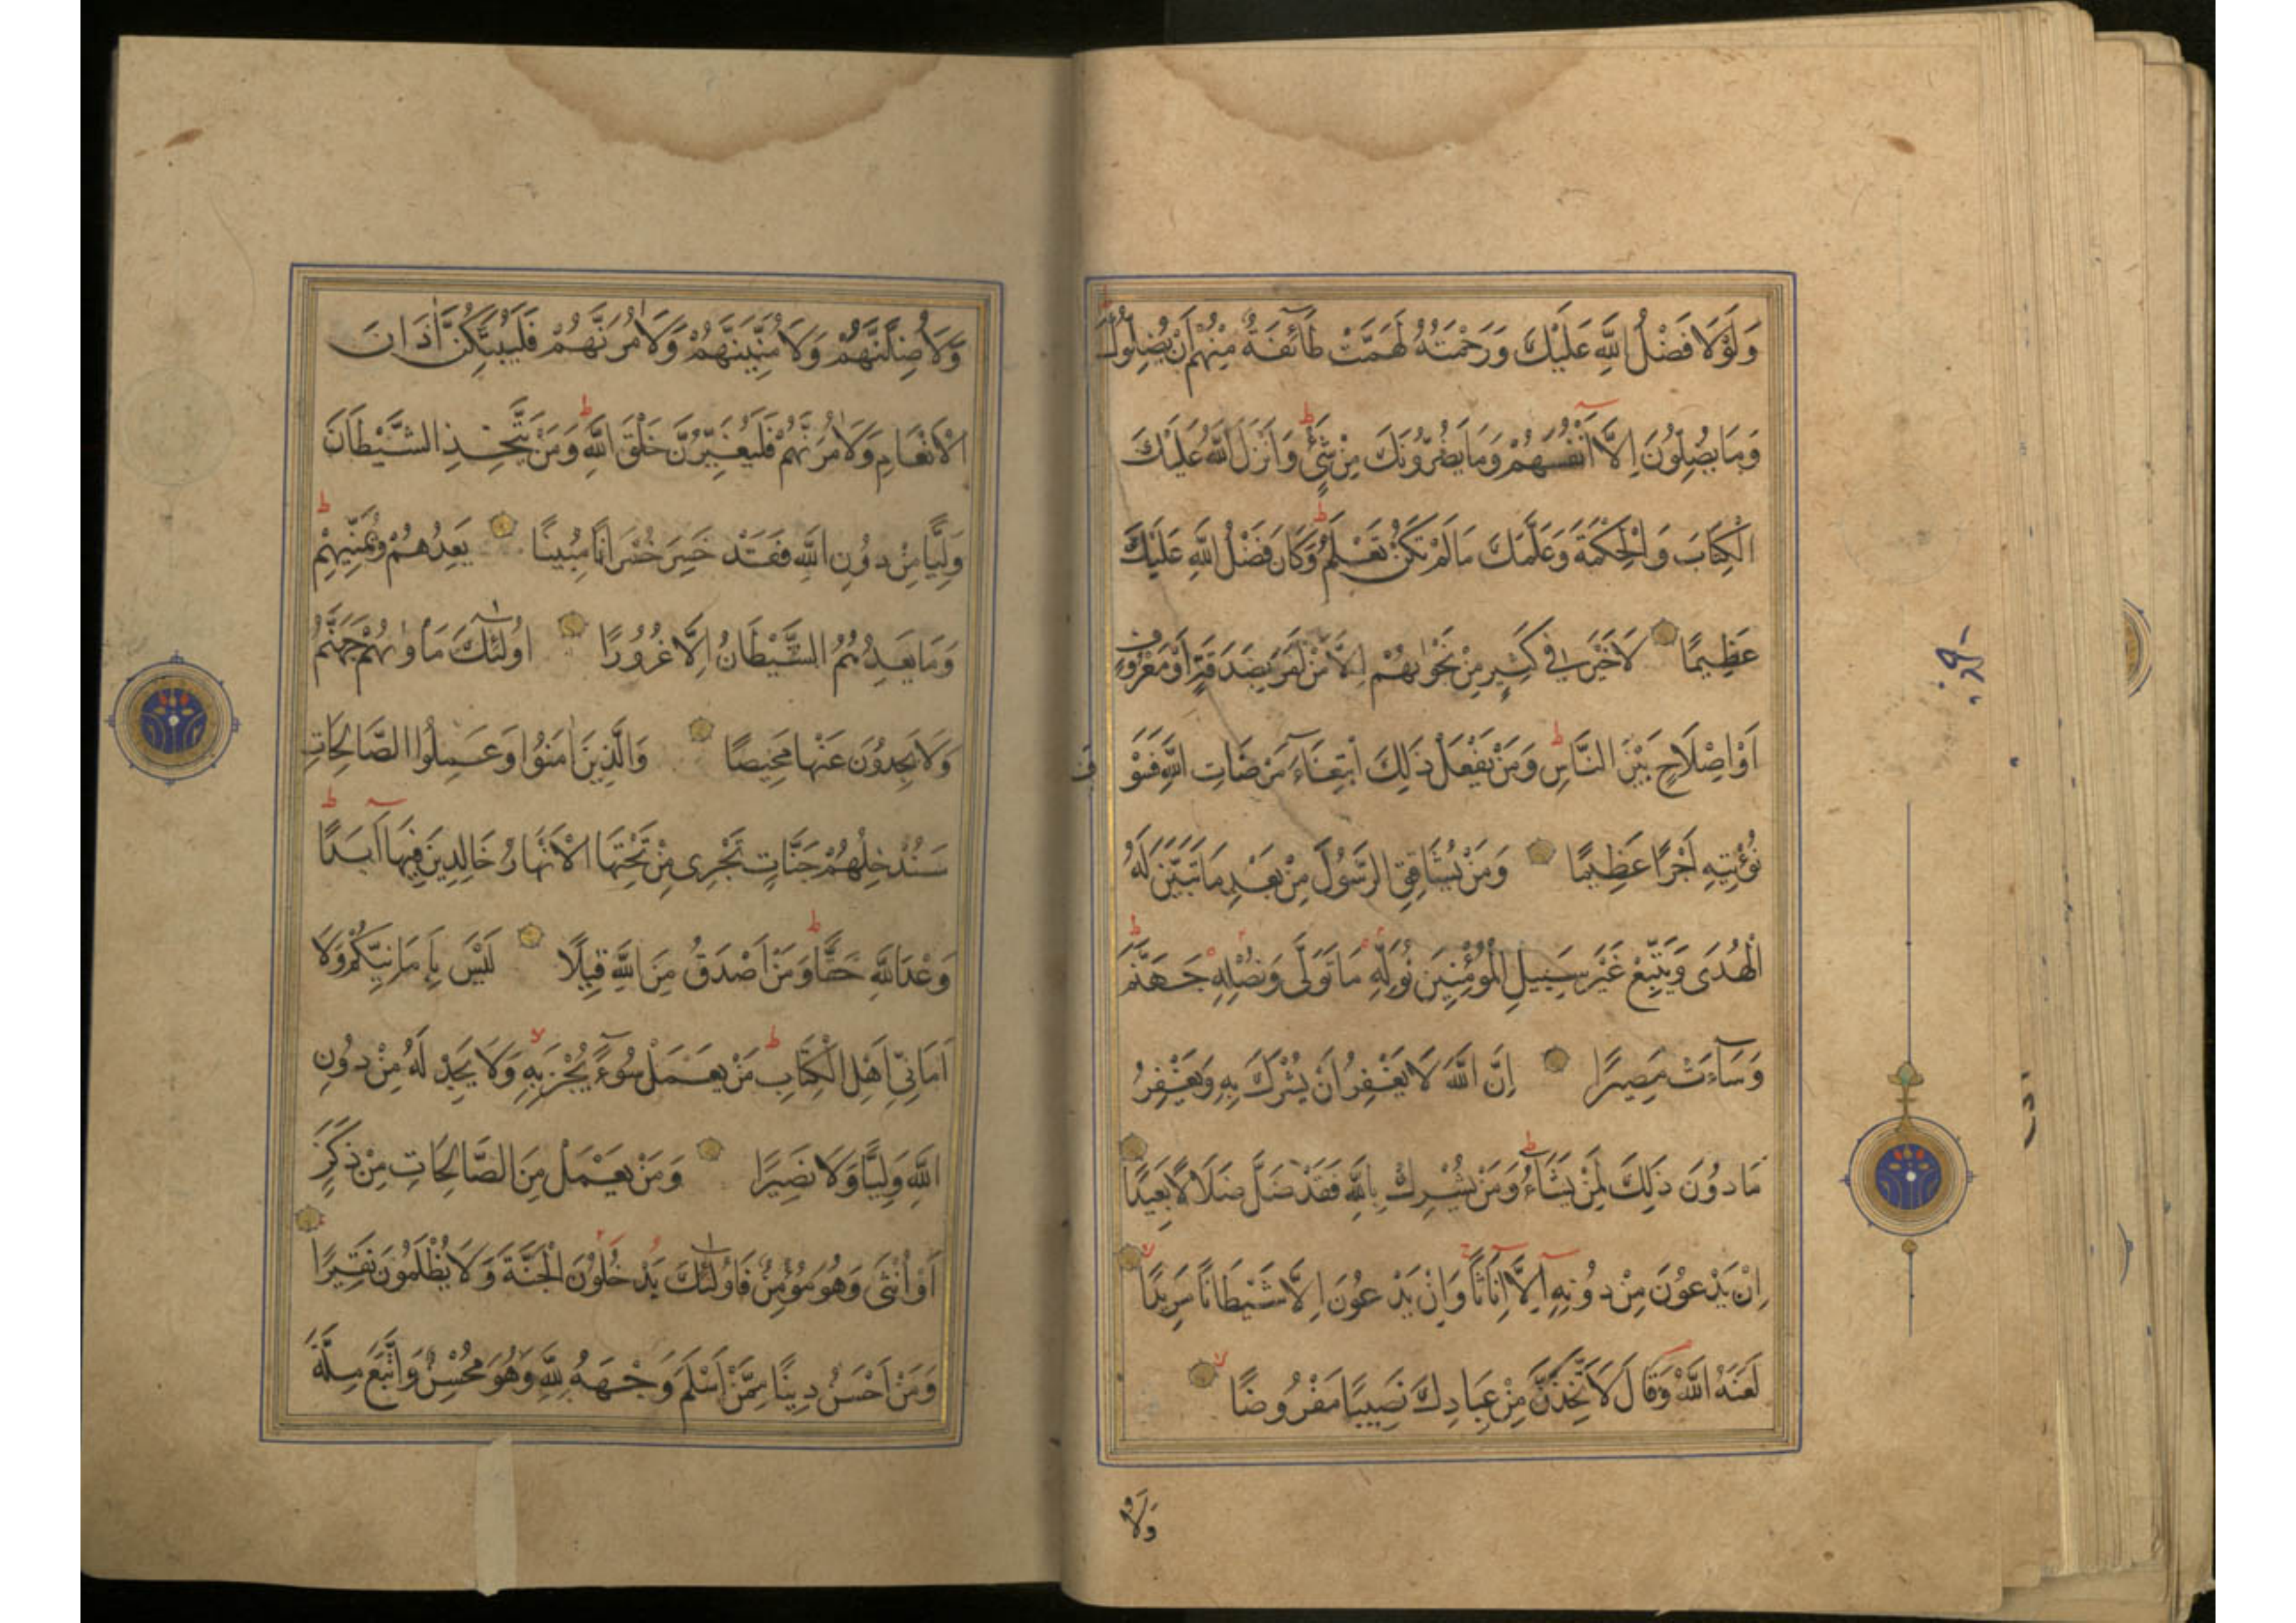 وَلَوْلَا فَضْلُ اللَّهِ عَلَيْكَ وَرَحْمَتُهُ لَهَمَّتْ طَآئِفَةٌ مِنْهُمْ اَنْ يُضِلُّوكَ
وَمَا يُضِلُّونَ اِلَّا اَنْفُسَهُمْ وَمَا يَضُرُّونَكَ مِنْ شَىْءٍ وَاَنْزَلَ اللَّهُ عَلَيْكَ
الْكِتَابَ وَالْحِكْمَةَ وَعَلَّمَكَ مَا لَمْ تَكُنْ تَعْلَمُ وَكَانَ فَضْلُ اللَّهِ عَلَيْكَ
عَظِيمًا لَا خَيْرَ فِى كَثِيرٍ مِنْ نَجْوٰيهُمْ اِلَّا مَنْ اَمَرَ بِصَدَقَةٍ اَوْ مَعْرُوفٍ
اَوْ اِصْلَاحٍ بَيْنَ النَّاسِ وَمَنْ يَفْعَلْ ذَلِكَ ابْتِغَآءَ مَرْضَاتِ اللَّهِ فَسَوْفَ
نُؤْتِيهِ اَجْرًا عَظِيمًا وَمَنْ يُشَاقِقِ الرَّسُولَ مِنْ بَعْدِ مَا تَبَيَّنَ لَهُ
الْهُدَى وَيَتَّبِعْ غَيْرَ سَبِيلِ الْمُؤْمِنِينَ نُوَلِّهِ مَا تَوَلَّى وَنُصْلِهِ جَهَنَّمَ
وَسَآءَتْ مَصِيرًا اِنَّ اللَّهَ لَا يَغْفِرُ اَنْ يُشْرَكَ بِهِ وَيَغْفِرُ
مَا دُونَ ذَلِكَ لِمَنْ يَشَآءُ وَمَنْ يُشْرِكْ بِاللَّهِ فَقَدْ ضَلَّ ضَلَالًا بَعِيدًا
اِنْ يَدْعُونَ مِنْ دُونِهِ اِلَّا اِنَاثًا وَاِنْ يَدْعُونَ اِلَّا شَيْطَانًا مَرِيدًا
لَعَنَهُ اللَّهُ وَقَالَ لَاَتَّخِذَنَّ مِنْ عِبَادِكَ نَصِيبًا مَفْرُوضًا
وَلَاُ
وَلَاُضِلَّنَّهُمْ وَلَاُمَنِّيَنَّهُمْ وَلَاٰمُرَنَّهُمْ فَلَيُبَتِّكُنَّ اٰذَانَ
الْاَنْعَامِ وَلَاٰمُرَنَّهُمْ فَلَيُغَيِّرُنَّ خَلْقَ اللَّهِ وَمَنْ يَتَّخِذِ الشَّيْطَانَ
وَلِيًّا مِنْ دُونِ اللَّهِ فَقَدْ خَسِرَ خُسْرَانًا مُبِينًا يَعِدُهُمْ وَيُمَنِّيهِمْ
وَمَا يَعِدُهُمُ الشَّيْطَانُ اِلَّا غُرُورًا اُولٰئِكَ مَاْوٰيهُمْ جَهَنَّمُ
وَلَا يَجِدُونَ عَنْهَا مَحِيصًا وَالَّذِينَ اٰمَنُوا وَعَمِلُوا الصَّالِحَاتِ
سَنُدْخِلُهُمْ جَنَّاتٍ تَجْرِى مِنْ تَحْتِهَا الْاَنْهَارُ خَالِدِينَ فِيهَا اَبَدًا
وَعْدَ اللَّهِ حَقًّا وَمَنْ اَصْدَقُ مِنَ اللَّهِ قِيلًا لَيْسَ بِاَمَانِيِّكُمْ وَلَا
اَمَانِىِّ اَهْلِ الْكِتَابِ مَنْ يَعْمَلْ سُوٓءًا يُجْزَ بِهِ وَلَا يَجِدْ لَهُ مِنْ دُونِ
اللَّهِ وَلِيًّا وَلَا نَصِيرًا وَمَنْ يَعْمَلْ مِنَ الصَّالِحَاتِ مِنْ ذَكَرٍ
اَوْ اُنْثَى وَهُوَ مُؤْمِنٌ فَاُولٰئِكَ يَدْخُلُونَ الْجَنَّةَ وَلَا يُظْلَمُونَ نَقِيرًا
وَمَنْ اَحْسَنُ دِينًا مِمَّنْ اَسْلَمَ وَجْهَهُ لِلَّهِ وَهُوَ مُحْسِنٌ وَاتَّبَعَ مِلَّةَ